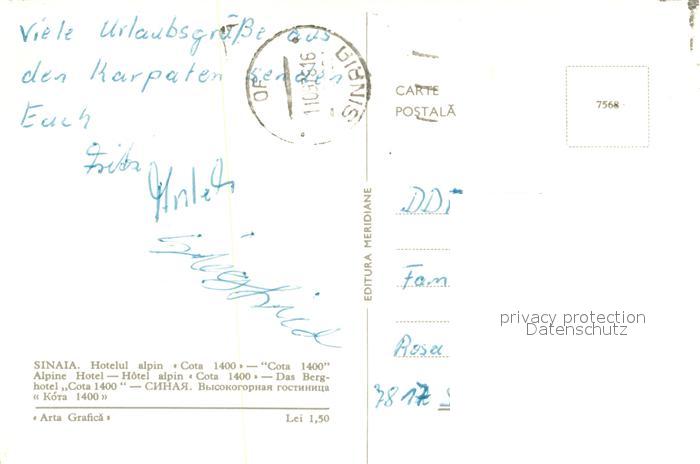 Viele Urlaubsgrüße aus
den Karpaten senden
Euch
Fritz
Siegfried
SINAIA. Hotelul alpin « Cota 1400 » — “Cota 1400”
Alpine Hotel — Hôtel alpin « Cota 1400 » — Das Berg-
hotel „Cota 1400 “ — СИНАЯ. Высокогорная гостиница
« Ко́та 1400 »
« Arta Grafică »
Lei 1,50
EDITURA MERIDIANE
CARTE
POȘTALĂ
7568
DDR
Fam
Rosa
7817
privacy protection
Datenschutz